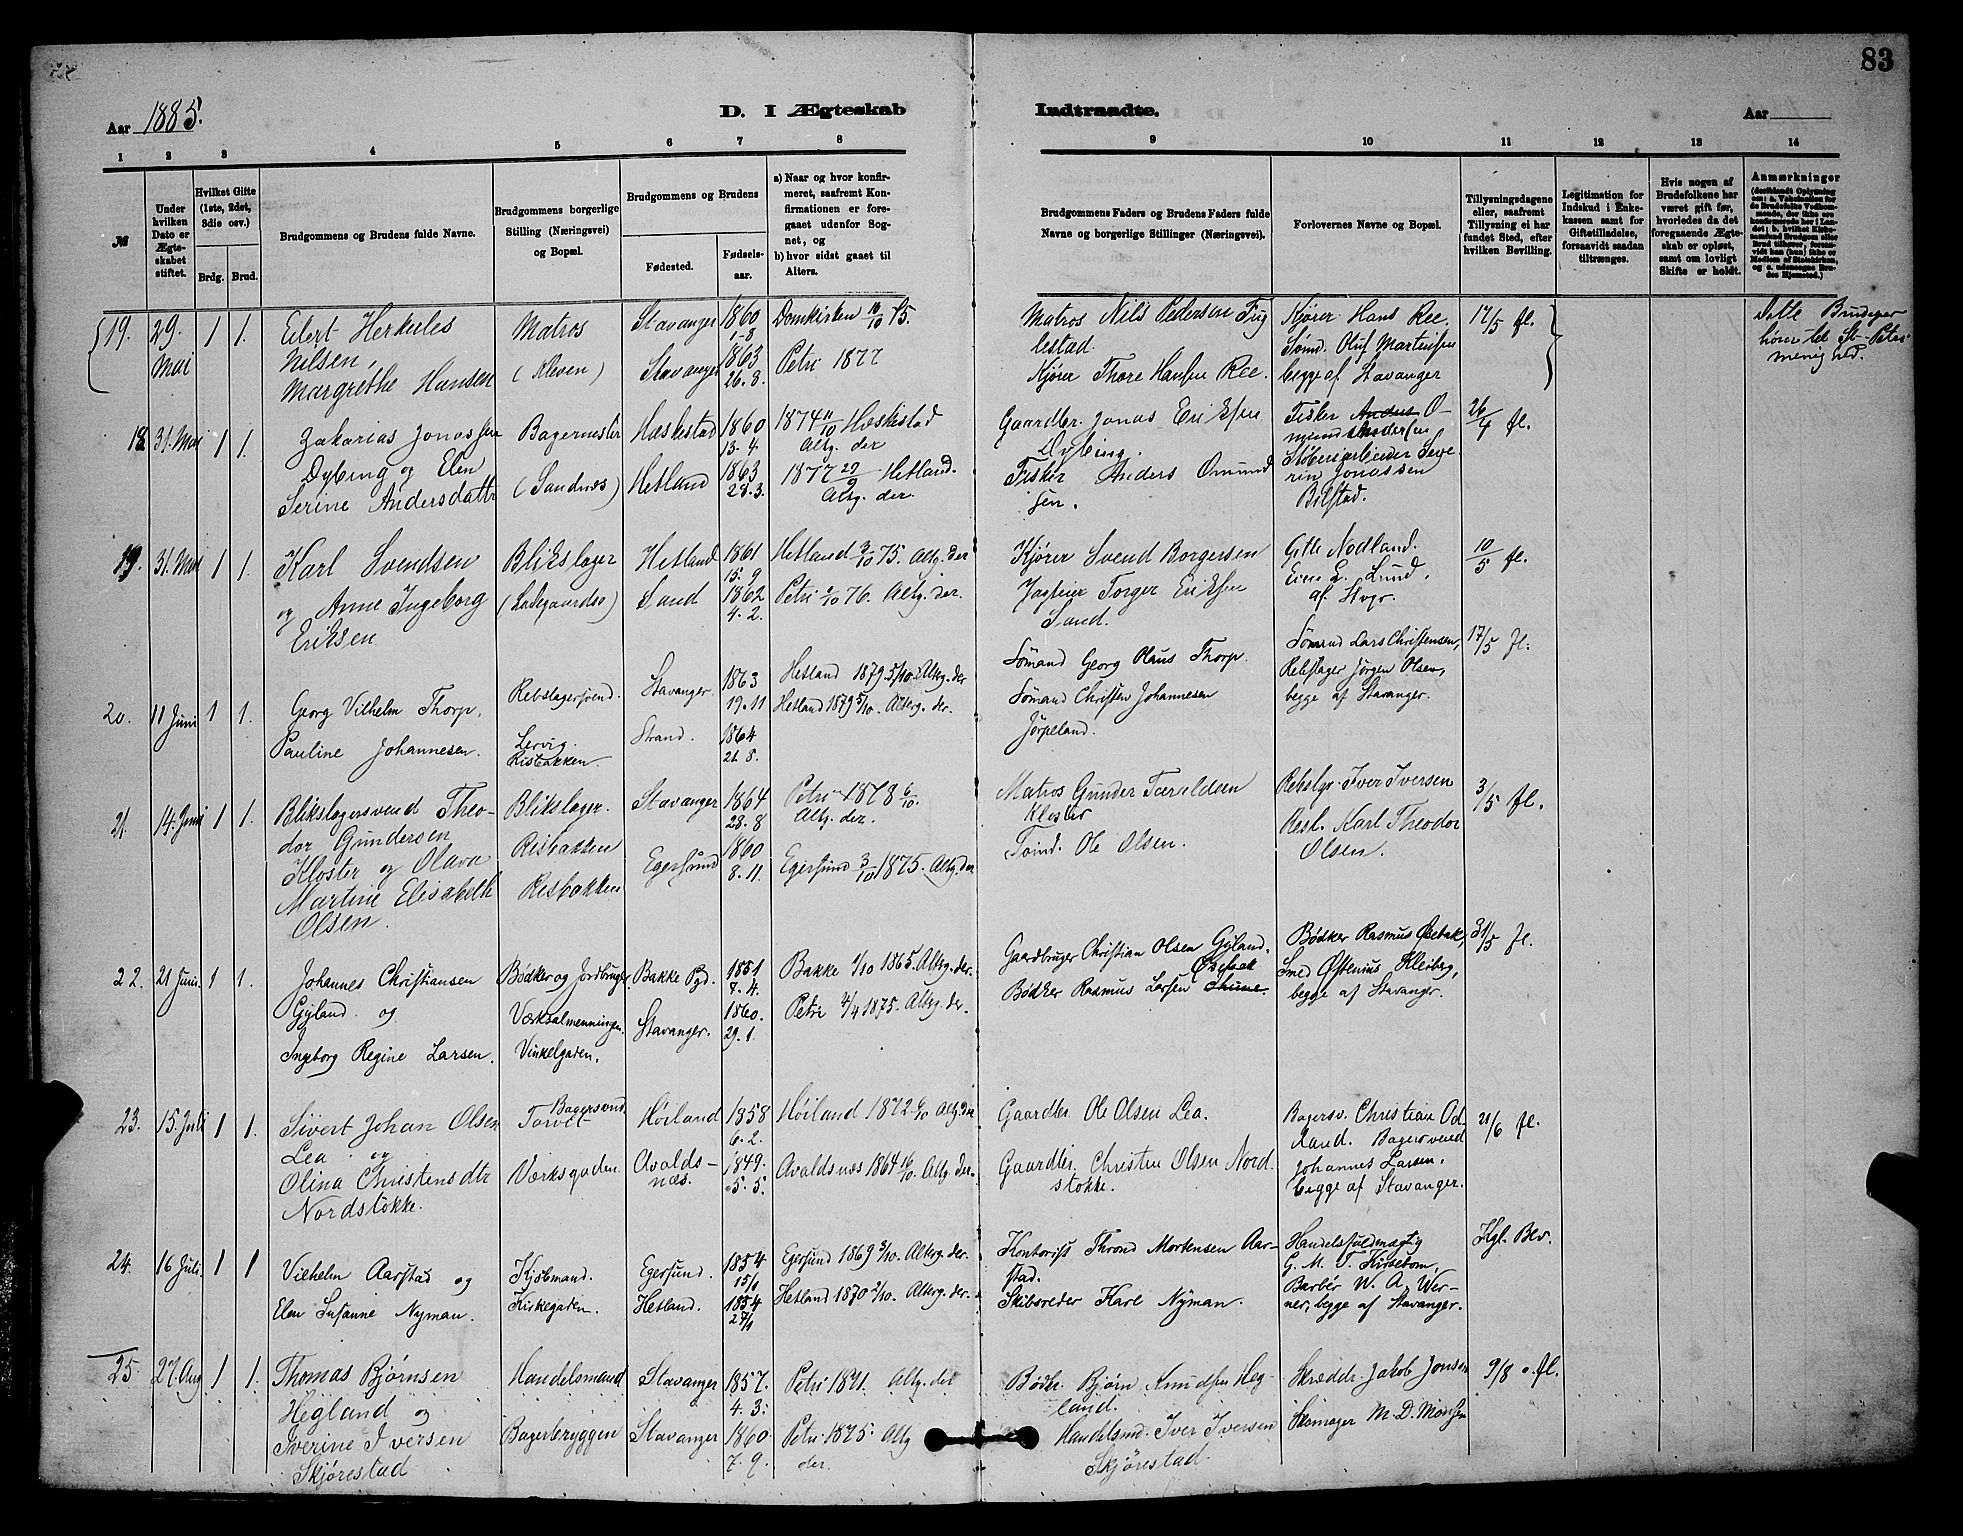 83
Aar 1885.
D. I Ægteskab
Indtraadte.
Aar
1 2 3 4 5 6 7 8 9 10 11 12 13 14
№
Under hvilken Dato er Ægteskabet stiftet.
Hvilket Gifte (1ste, 2det, 3die osv.)
Brdg. Brud.
Brudgommens og Brudens fulde Navne.
Brudgommens borgerlige Stilling (Næringsvei) og Bopæl.
Brudgommens og Brudens
Fødested.
Fødselsaar.
a) Naar og hvor konfirmeret, saafremt Konfirmationen er foregaaet udenfor Sognet, og
b) hvor sidst gaaet til Alters.
Brudgommens Faders og Brudens Faders fulde Navne og borgerlige Stillinger (Næringsvei).
Forlovernes Navne og Bopæl.
Tillysningsdagene eller, saafremt Tillysning ei har fundet Sted, efter hvilken Bevilling.
Legitimation for Indskud i Enkekassen samt for Giftetilladelse, forsaavidt saadan tiltrænges.
Hvis nogen af Brudefolkene har været gift før, hvorledes da det foregaaende Ægteskab er opløst, samt om lovligt Skifte er holdt.
Anmærkninger
19. 29. Mai 1 1.
Eilert Herkules
Nilsen,
Margrethe Hansen
Matros
(Kleven)
Stavanger 1860 1-8
Stavanger 1863 26.8.
Domkirken 10/10 75.
Petri 1877
Matros Nils Pedersen Tug
lestad.
Kjører Thore Hansen Ree.
Kjører Hans Ree
Sømd. Oluf Martinsen
begge af Stavanger
17/5 fl.
Dette Brudepar
hører til St. Petri
menighed.
18. 31. Mai 1 1.
Zakarias Jonassen
Dybing og Elen
Serine Andersdattr
Bagermester
(Sandnes)
Heskestad 1860 13-4.
Hetland 1863 28.3.
1874 11/10 Heskestad
Altg. der
1877 29/9 Hetland.
Altg. der.
Gaardbr. Jonas Eriksen
Dybing.
Fisker Anders Omund
sen.
Fisker Anders O-
mund Andersen
Støberiarbeider Seve-
rin Jonassen
Bilstad.
26/4 fl.
19. 31. Mai 1 1.
Karl Svendsen
og Anne Ingeborg
Eriksen
Blikslager
(Ladegaardsv)
Hetland 1861 15.9
Sand 1862 4.2.
Hetland 3/10 75. Altg. der
Petri 1/10 76. Altg. der.
Kjører Svend Borgersen
Torger Eriksen
Sand.
Gitle Nodland.
E. Lund,
af Stvgr.
10/5 fl.
20. 11 Juni 1 1.
Georg Vilhelm Thorp,
Pauline Johannesen.
Rebslagersvend.
Lervig.
Risbakken.
Stavanger. 1863 19.11
Strand. 1864 21.8.
Hetland 1879 5/10. Altbg. der
Hetland 1879 5/10. Altbg. der.
Sømand Georg Olaus Thorp.
Sømand Christen Johannesen
Jörpeland.
Sømand Lars Christensen,
Rebslager Jörgen Olsen,
begge af Stavanger.
17/5 fl.
21. 14. Juni 1 1.
Blikslagersvend Theo-
dor Gundersen
Kloster og Olava
Martine Elisabeth
Olsen.
Blikslager.
Risbakken
Risbakken
Stavanger 1864 28.8
Egersund 1860 8.11.
Petri 1878 6/10.
Altg. der.
Egersund 3/10 1875. Altg. der
Matros Gunder Taraldsen
Kloster
Tømd. Ole Olsen.
Rebslgr. Iver Iversen
Resl. Karl Theodor
Olsen.
3/5 fl.
22. 21 Juni. 1 1.
Johannes Christiansen
Gyland og
Ingborg Regine Larsen.
Bødker og Jordbruger.
Værksalmenningen.
Vinkelgaden.
Bakke Pgd. 1851 7.4.
Stavanger. 1860. 29.1.
Bakke 1/10 1865. Altbg. der.
Petri 4/4 1875. Altbg. der.
Gaardbruger Christian Olsen Gyland.
Bødker Rasmus Larsen Thune. Østebak
Bødker Rasmus Østebak,
Smed Østenius Kleiberg,
begge af Stavanger.
31/5 fl.
23. 15. Juli 1 1.
Sivert Johan Olsen
Lea og
Olina Christensdtr
Nordstokke.
Bagersvend
Torvet
Værksgaden.
Høiland 1858 6.2.
Avalds-
næs. 1849. 5.5.
Høiland 1872 6/10 Altg. der
Avaldsnæs 1864 16/10. Altbg. der.
Gaardbr. Ole Olsen Lea.
Gaardbr. Christen Olsen Nord
stokke.
Bagersv. Christian Od-
land. Bagersvend
Johannes Larsen,
begge af Stavanger.
21/6 fl.
24. 16 Juli. 1 1
Vilhelm Aarstad og
Elen Susanne Nyman.
Kjøbmand.
Kirkegaden.
Egersund. 1854 15/1
Hetland. 1854 27/1
Egersund 1869 3/10. Altbrg. der.
Hetland 1870 2/10. Altbrg. der.
Kontorist Thrond Mortensen Aar-
stad.
Skibsreder Karl Nyman.
Handelsfuldmægtig
G. M. T. Kirsebom,
Barbér W. A. Wer-
ner, begge af Stavanger.
Kgl. Bev.
25. 27. Aug 1 1.
Thomas Bjørnsen
Hegland og
Iverine Iversen
Skjørestad
Handelsmand
Bagerbryggen
Stavanger 1857. 4.3.
Stavanger 1860 7.9.
Petri 1871. Altg. der
Petri 1875. Altg
der.
Bødkr. Bjørn Knudsen Heg-
land.
Handelsmd. Iver Iversen
Skjørestad.
Skræddr. Jakob Jonsen
Skomager M. D. Monsen
9/8 fl.